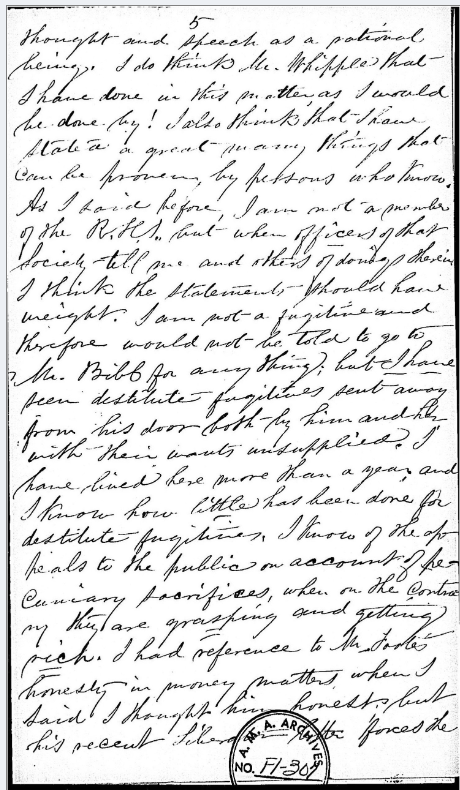 5
thought and speech as a rational
being. I do think Mr. Whipple that
I have done in this matter as I would
be done by! I also think that I have
stated a great many things that
can be proven, by persons who know.
As I said before, I am not a member
of the R.H.S., but when officers of that
society tell me and others of doings therein
I think the statements should have
weight. I am not a fugitive and
therefore would not be told to go to
Mr. Bibb for any thing; but I have
seen destitute fugitives sent away
from his door both by him and her
with their wants unsupplied. I
have lived here more than a year, and
I know how little has been done for
destitute fugitives. I know of the ap
peals to the public on account of pe
cuniary sacrifices, when on the contra
ry they are grasping and getting
rich. I had reference to Mr. Foote's
honesty in money matters when I
said I thought him honest, but
his recent forces the
A. M. A. ARCHIVES
NO. F1-307